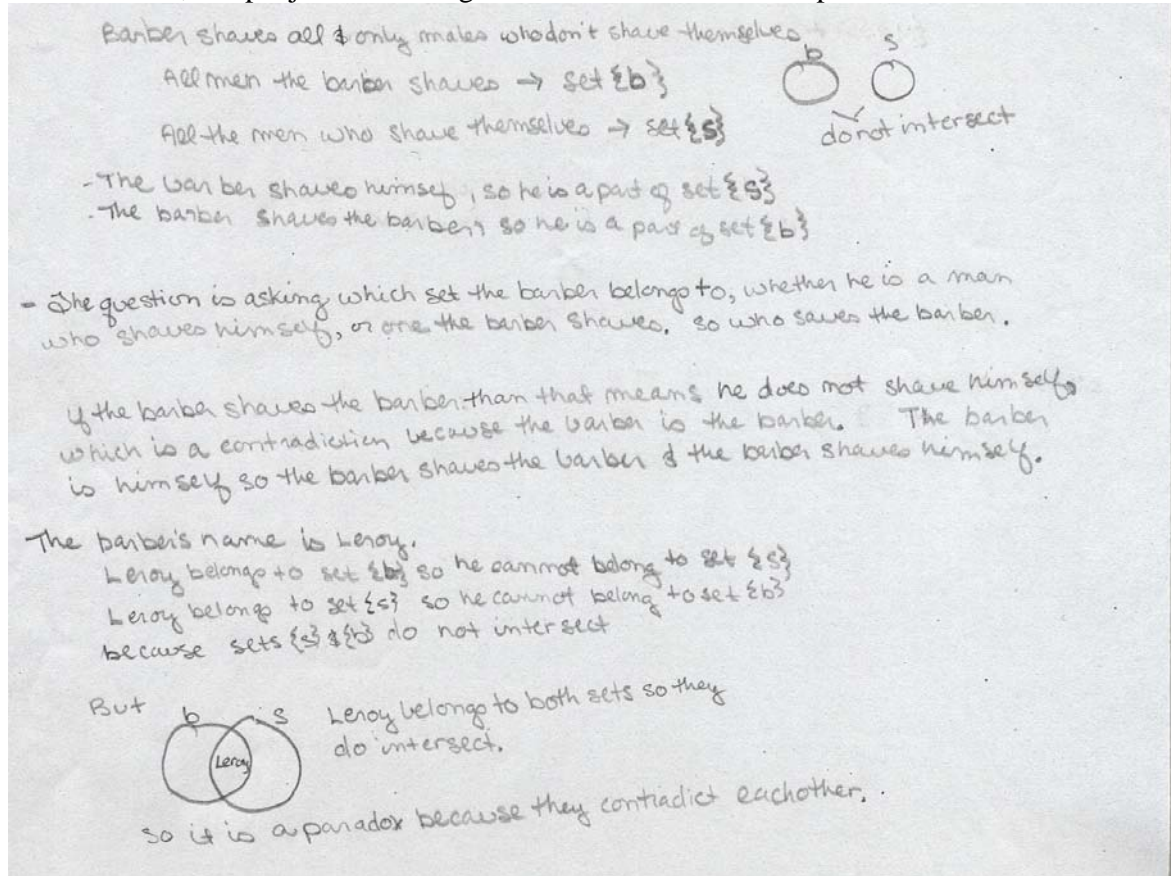 Barber shaves all & only males who don't shave themselves
b s
All men the barber shaves → set {b}
do not intersect
All the men who shave themselves → set {s}
- The barber shaves himself, so he is a part of set {s}
- The barber shaves the barber, so he is a part of set {b}
- The question is asking which set the barber belongs to, whether he is a man
who shaves himself, or one the barber shaves. so who saves the barber.
if the barber shaves the barber than that means he does not shave himself,
which is a contradiction because the barber is the barber. The barber
is himself so the barber shaves the barber & the barber shaves himself.
The barber's name is Leroy.
Leroy belongs to set {b} so he cannot belong to set {s}
Leroy belongs to set {s} so he cannot belong to set {b}
because sets {s} & {b} do not intersect
But
b s
Leroy
Leroy belongs to both sets so they
do intersect.
so it is a paradox because they contradict eachother.